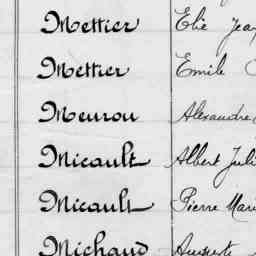 Mettier Elie Jean
Mettier Emile
Meurou Alexandre
Micault Albert Juli
Micault Pierre Mari
Michaud Auguste